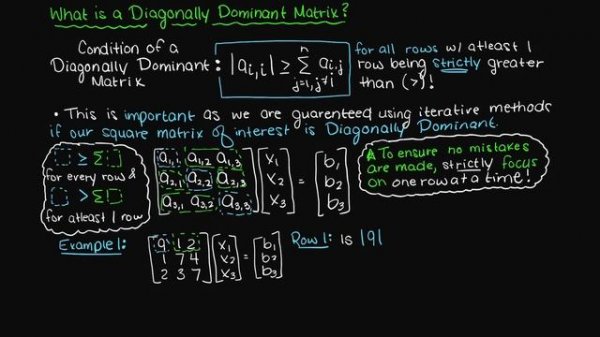 What is a Diagonally Dominant Matrix?
Condition of a
Diagonally Dominant :
Matrix
|a i,i| ≥ n Σ j=1, j≠i a i,j
for all rows w/ atleast 1
row being strictly greater
than (>)!
• This is important as we are guarenteed using iterative methods
if our square matrix of interest is Diagonally Dominant.
≥ Σ
for every row &
> Σ
for atleast 1 row
a1,1 a1,2 a1,3 x1 = b1
a2,1 a2,2 a2,3 x2 b2
a3,1 a3,2 a3,3 x3 b3
To ensure no mistakes
are made, strictly focus
on one row at a time!
Example 1:
9 1 2 x1 b1
1 7 4 x2 = b2
2 3 7 x3 b3
Row 1: is |9|